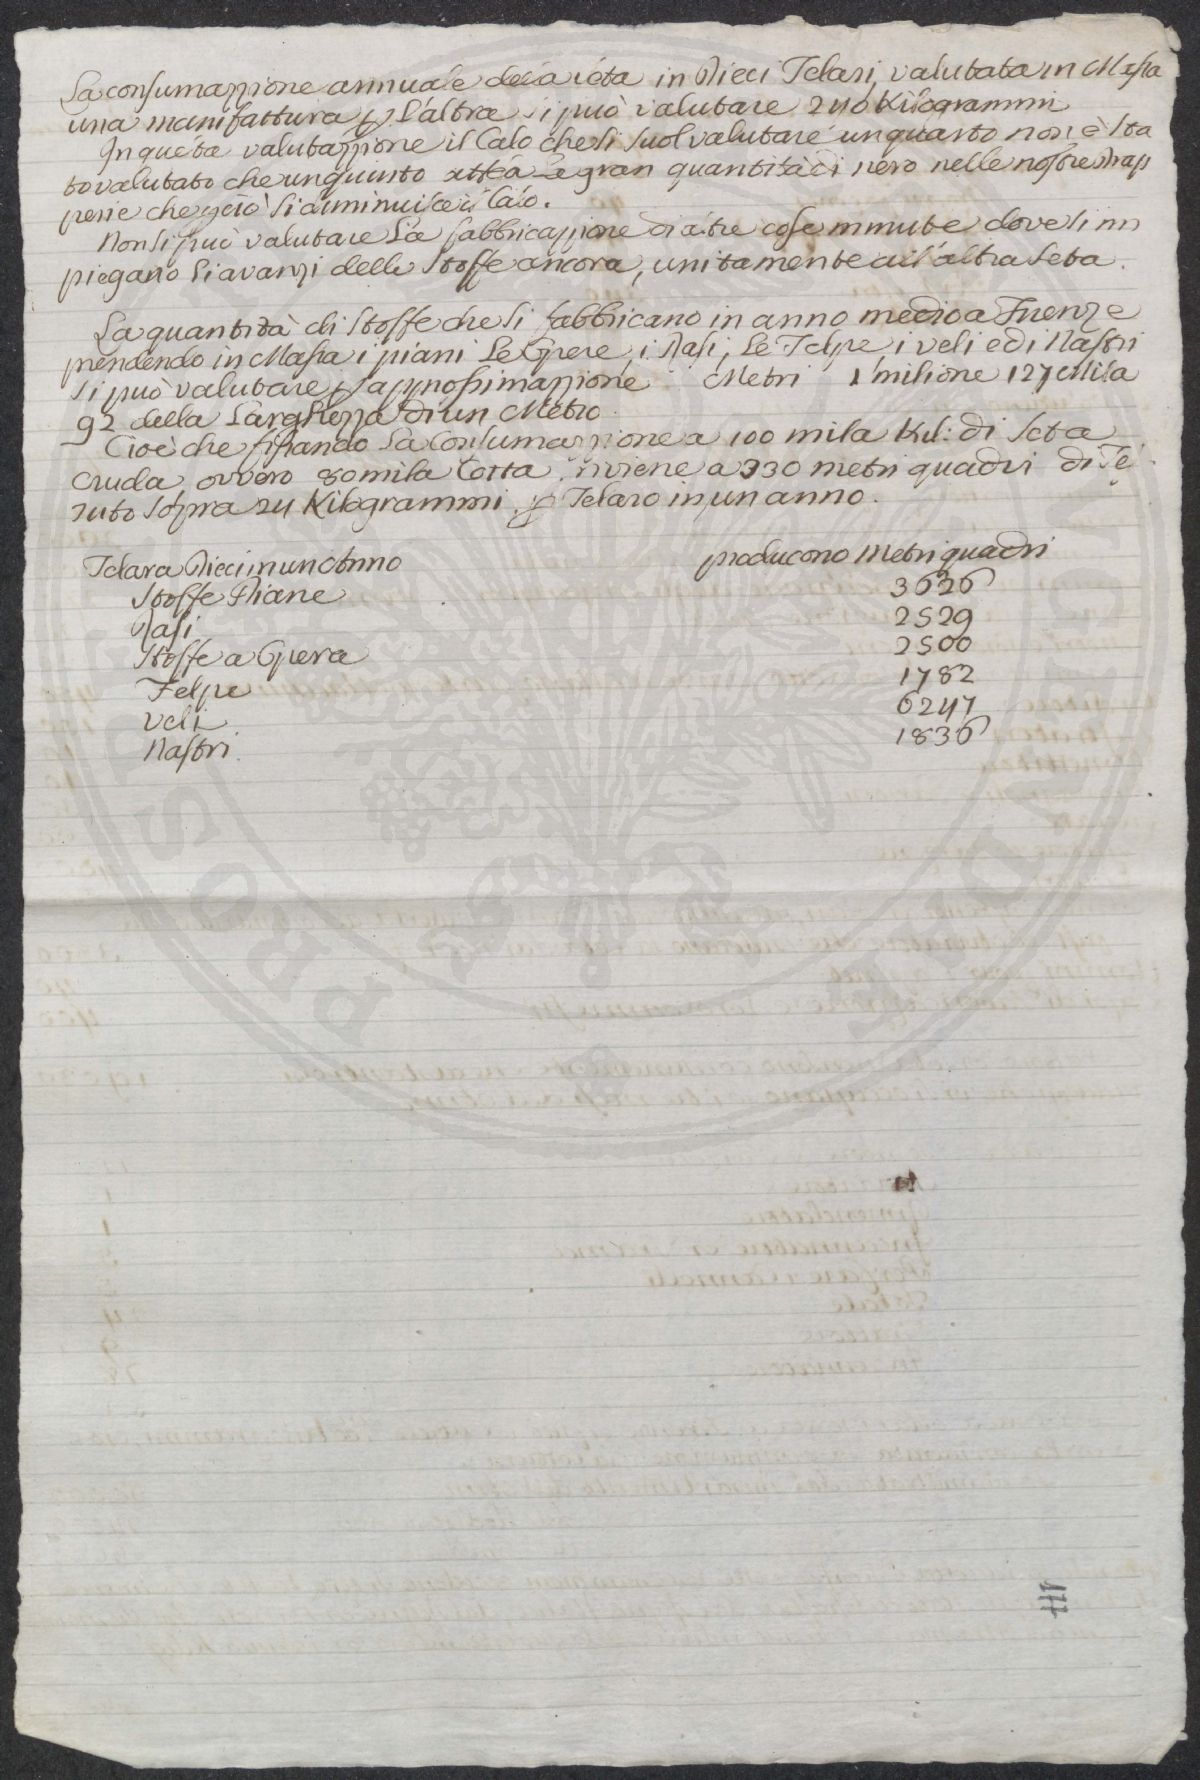 La consumazzione annuale della seta in Dieci Telari, valutata in Massa
una manifattura p l'altra si può valutare 240 Kilogrammi
In questa valutazzione il Calo che si suol valutare un quarto non è sta
to valutato che un quinto attesa la gran quantità di nero nelle nostre drap
perie che perciò diminuisce il Calo.
Non si può valutare La fabbricazzione di altre cose minute dove si im
piegano Li avanzi delle Stoffe ancora, unitamente all'altra Seta.
La quantità di Stoffe che si fabbricano in anno medio a Firenze
prendendo in Massa i piani Le Opere, i Rasi, Le Felpe, i veli ed i Nastri
si può valutare p approssimazzione Metri 1 milione 127 Mila
92 della Larghezza di un Metro.
Cioè che fissando La Consumazzione a 100 mila Kil: di Seta
Cruda ovvero 80 mila Cotta, riviene a 330 metri quadri di Te
suto sopra 24 Kilogrammi p Telaro in un anno.
Telara Dieci in un Anno producono Metri quadri
Stoffe Piane 3626
Rasi 2529
Stoffe a Opera 2500
Felpe 1782
Veli 6247
Nastri 1836
PROSPERITATI